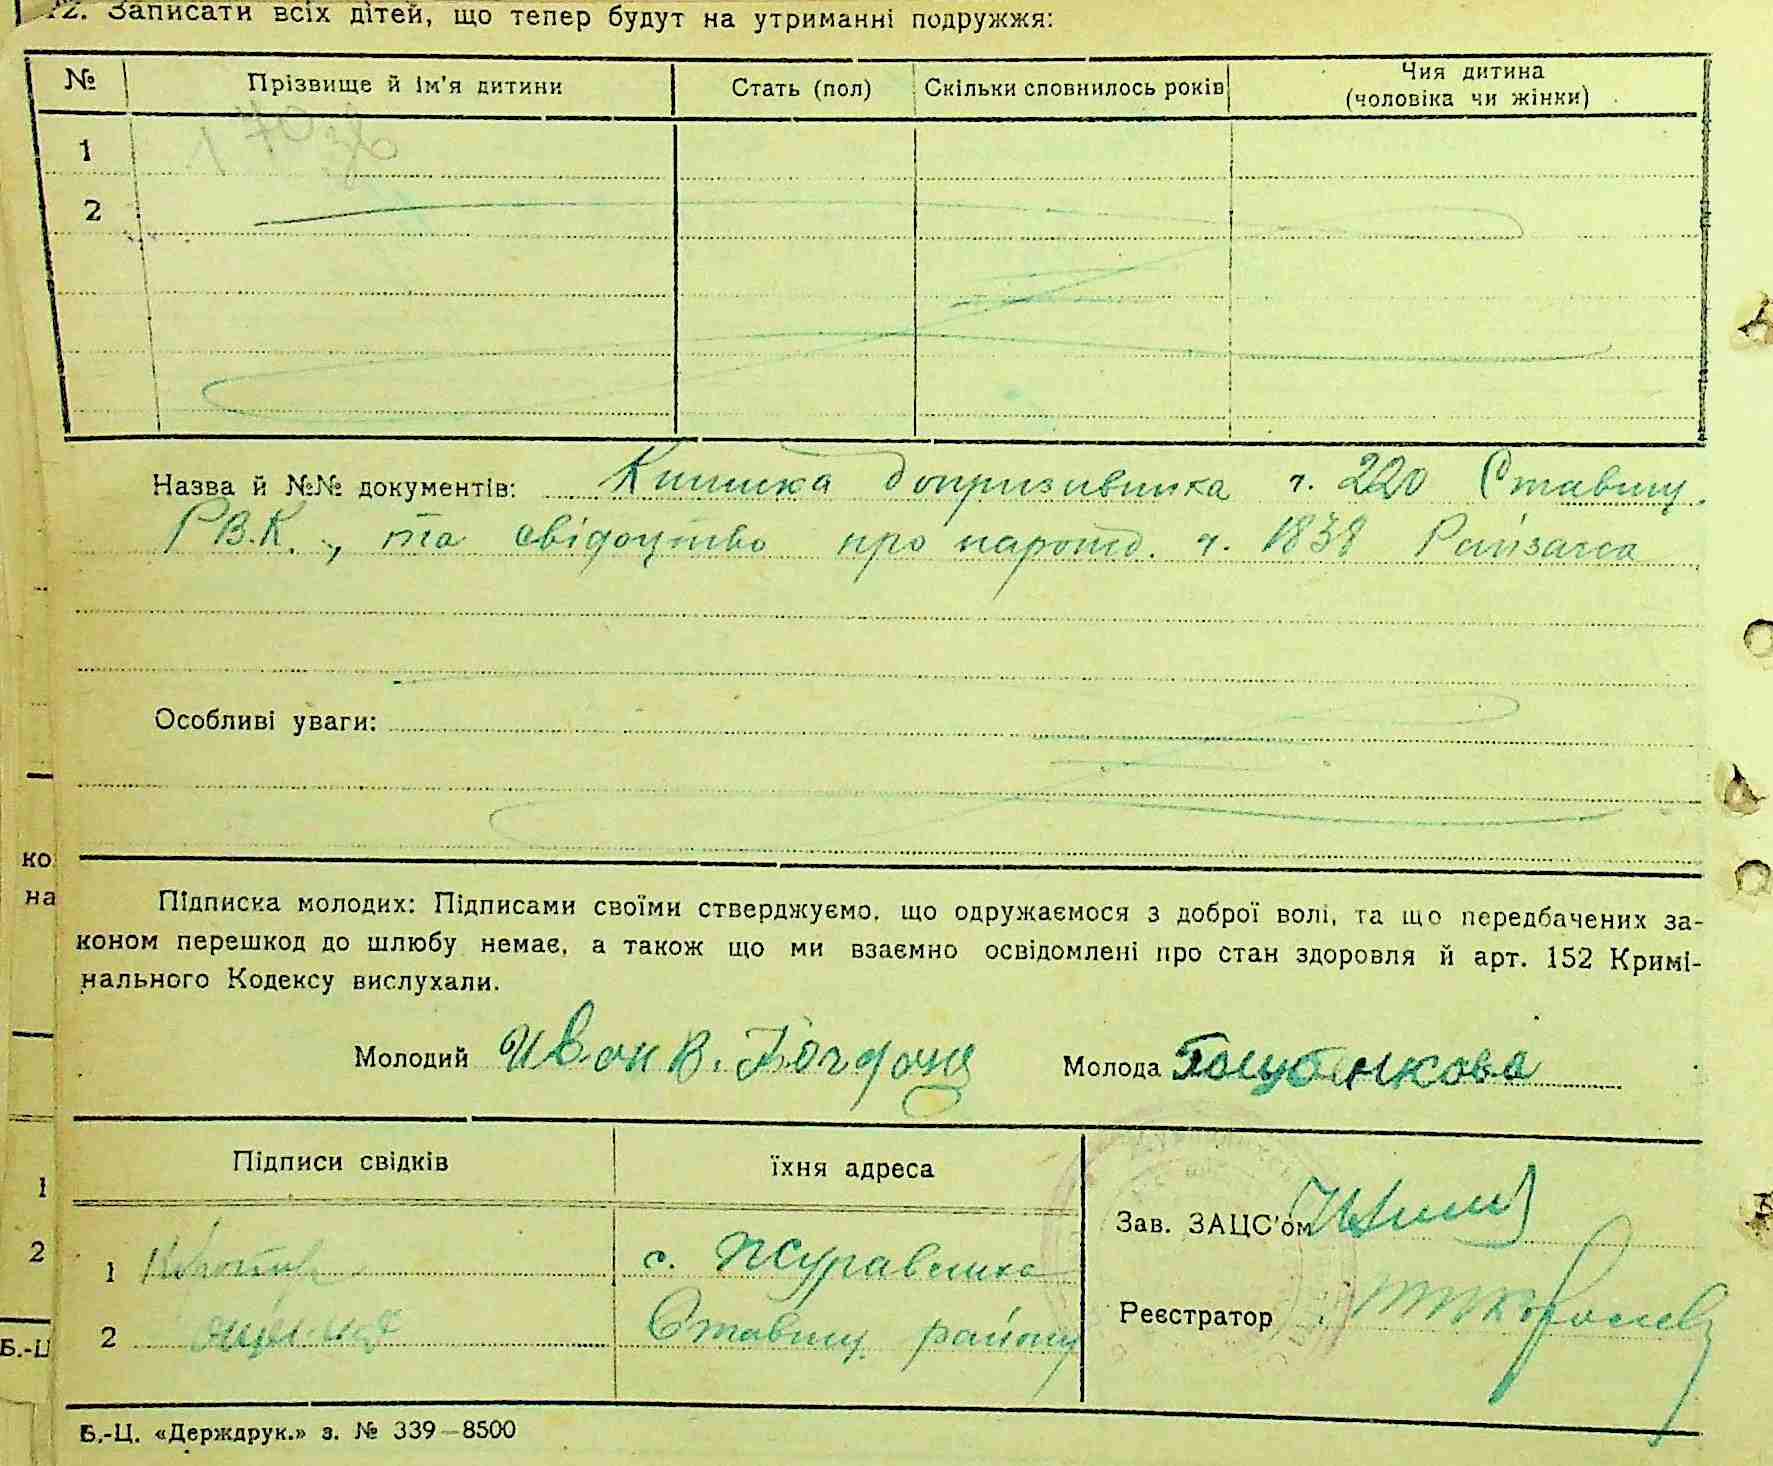 12. Записати всіх дітей, що тепер будут на утриманні подружжя:
№ Прізвище й ім'я дитини Стать (пол) Скільки сповнилось років Чия дитина (чоловіка чи жінки)
1
2
Назва й №№ документів: Книжка допризивника ч. 220 Ставищ.
Р.В.К., та свідоцтво про нарожд. ч. 1838 Райзагса
Особливі уваги:
Підписка молодих: Підписами своїми стверджуємо, що одружаємося з доброї волі, та що передбачених за-
коном перешкод до шлюбу немає, а також що ми взаємно освідомлені про стан здоровля й арт. 152 Кримі-
нального Кодексу вислухали.
Молодий Иван В. Богдона Молода Голубенкова
Підписи свідків їхня адреса
Зав. ЗАЦС'ом
1 с. Журавлика
Реєстратор
2 Ставищ. району
Б.-Ц. «Держдрук.» з. № 339—8500
ко
на
1
2
Б.-Ц